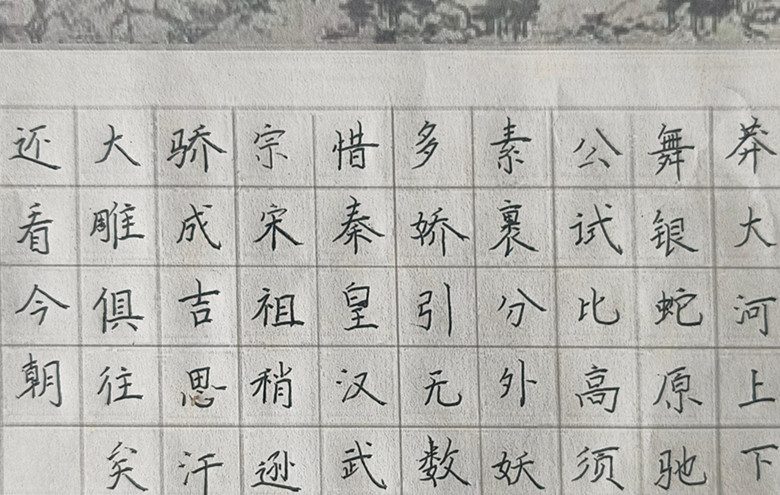 莽大河上下
舞银蛇原驰
公试比高须
素裹分外妖
多娇引无数
惜秦皇汉武
宗宋祖稍逊
骄成吉思汗
大雕俱往矣
还看今朝